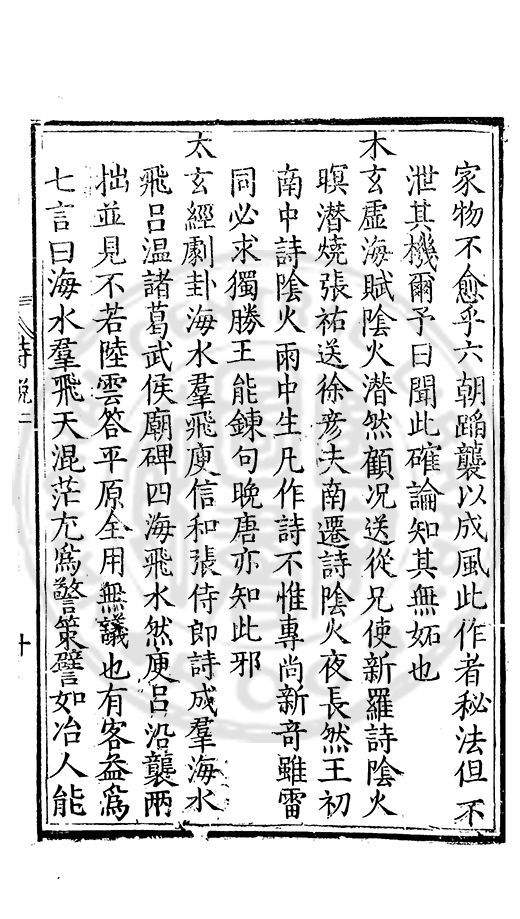 家物不愈乎六朝蹈襲以成風此作者秘法但不
泄其機爾予曰聞此確論知其無妬也
木玄虛海賦陰火潛然顧况送從兄使新羅詩陰火
暝潛燒張祐送徐彦夫南遷詩陰火夜長然王初
南中詩陰火雨中生凡作詩不惟專尚新奇雖雷
同必求獨勝王能鍊句晚唐亦知此邪
太玄經劇卦海水羣飛庾信和張侍郎詩成羣海水
飛吕温諸葛武侯廟碑四海飛水然庾吕沿襲兩
拙並見不若陸雲答平原全用無議也有客益爲
七言曰海水羣飛天混茫尤爲警策譬如冶人能
詩說二
十